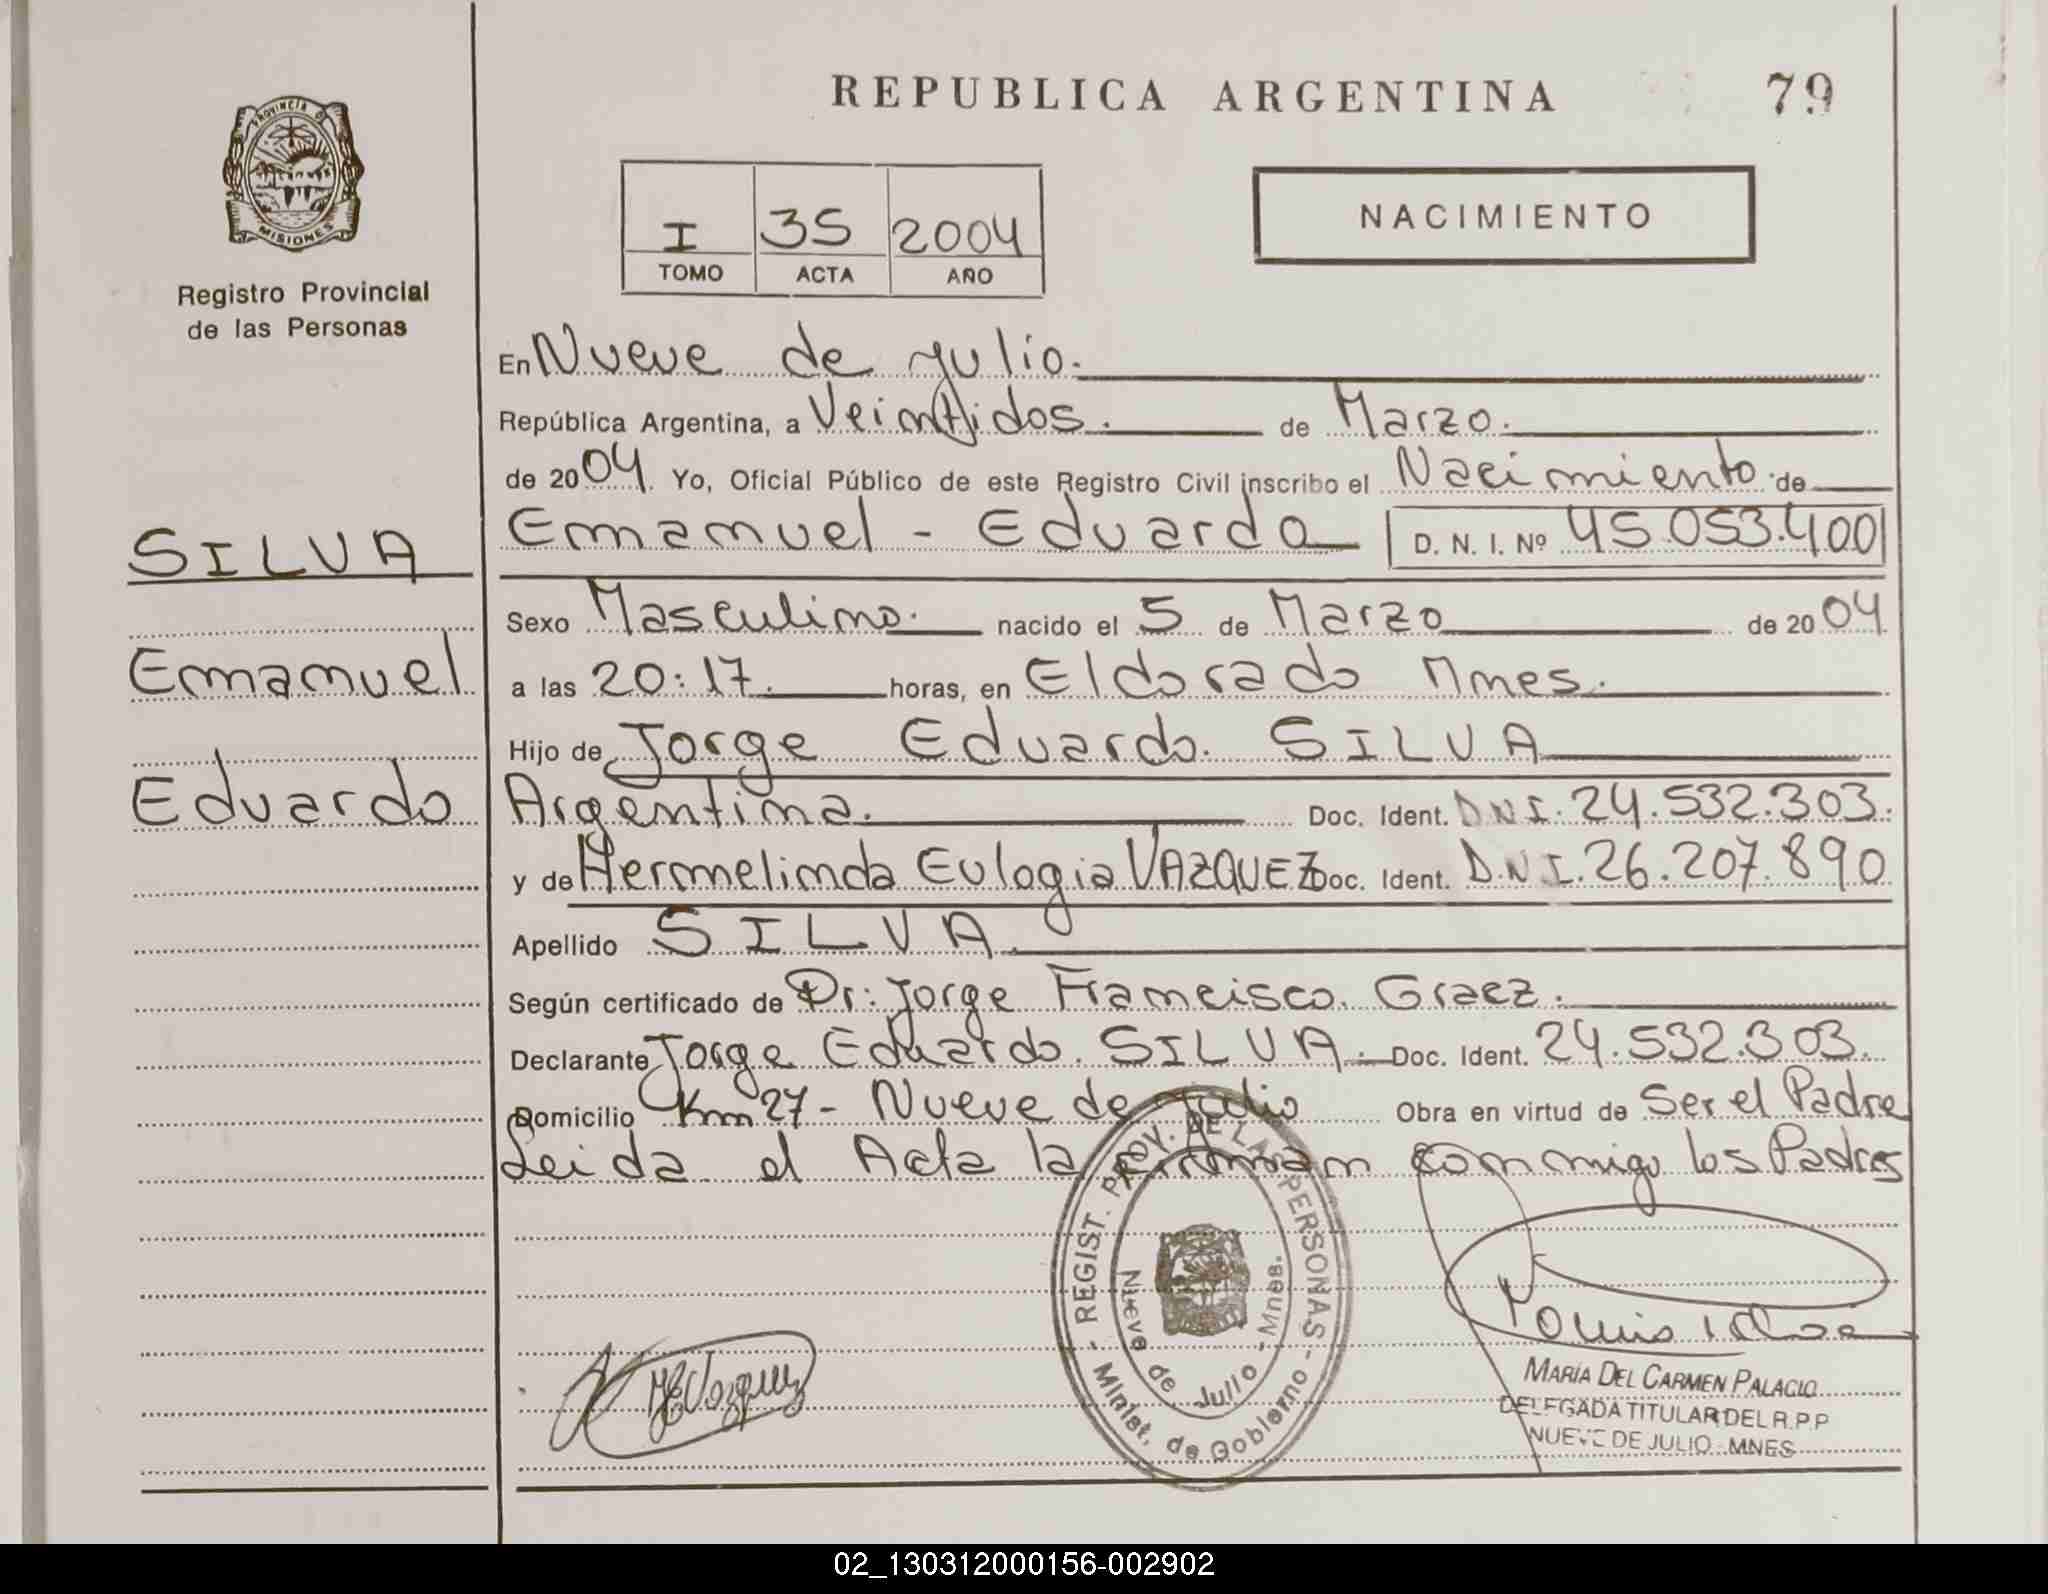 REPUBLICA ARGENTINA
79
PROVINCIA D
MISIONES
Registro Provincial
de las Personas
NACIMIENTO
I 35 2004
TOMO ACTA AÑO
En Nueve de Julio.
República Argentina, a Veintidos. de Marzo.
de 2004. Yo, Oficial Público de este Registro Civil inscribo el Nacimiento de
SILVA
Emanuel - Eduardo D. N. I. Nº 45.053.400
Sexo Masculino. nacido el 5 de Marzo de 2004
Emanuel
a las 20:17. horas, en Eldorado Mnes.
Hijo de Jorge Eduardo. SILVA
Eduardo
Argentina. Doc. Ident. DNI. 24.532.303.
y de Hermelinda Eulogia VAZQUEZ Doc. Ident. D.N.I. 26.207.890
Apellido SILVA.
Según certificado de Dr: Jorge Francisco. Graez.
Declarante Jorge Eduardo. SILVA. Doc. Ident. 24.532.303.
Domicilio Km 27 - Nueve de Julio Obra en virtud de Ser el Padre
Leida el Acta la firman conmigo los Padres
- REGIST. PROV. DE LAS PERSONAS -
Minist. de Gobierno
Nueve de Julio - Mnes.
HEVazquez
MARÍA DEL CARMEN PALACIO
DELEGADA TITULAR DEL R.P.P
NUEVE DE JULIO - MNES
02_130312000156-002902